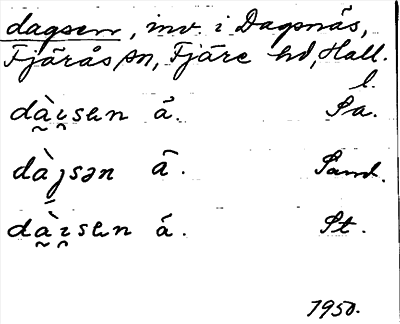 dagsen, inv. i Dagsnäs,
Fjärås sn, Fjäre hd, Hall.
l.
dàɪsen å. Sa.
dàȷsən ā. Sand.
dàɪsen á. St.
1950.